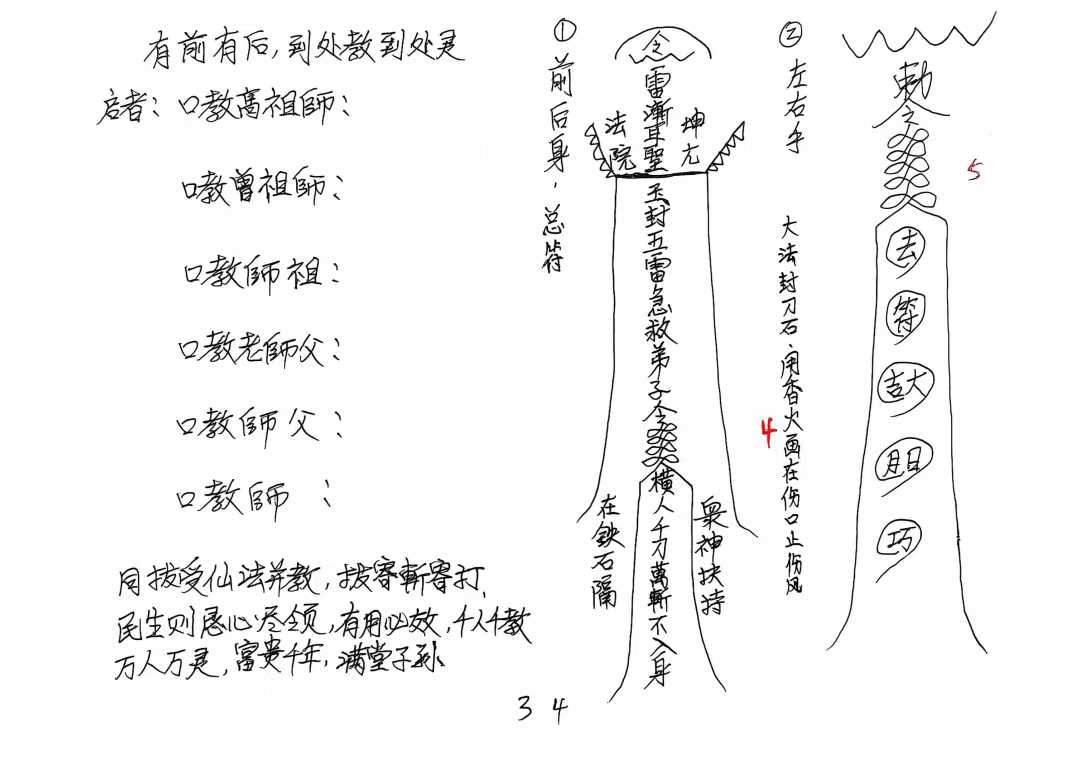 有前有后,到处教到处灵
启者:口教高祖師:
口教曾祖師:
口教師祖:
口教老師父:
口教師父:
口教師 :
民生则愚心尽领,有用必效,千人千教
万人万灵,富贵千年,满堂子孙
① 前后身,总符
令
法院
坤亢
玉封五雷急救弟子令
横人千刀萬斬不入身
在鉄石隔
衆神扶持
② 左右手
大法封刀石.用香火画在伤口止伤风
4
勅令
5
去
符
吉大
月日
巧
34